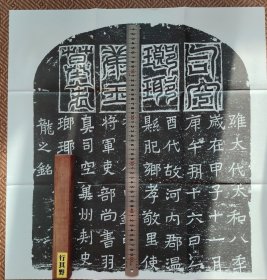 司空
瑯琊
康王
墓表
維大代太和八年
歲在甲子十一月
庚午朔十六日乙
酉代故河內郡溫
縣肥鄉孝敬里使
將軍吏部尚書羽
真司空冀州刺史
瑯琊
龍之銘
行其野